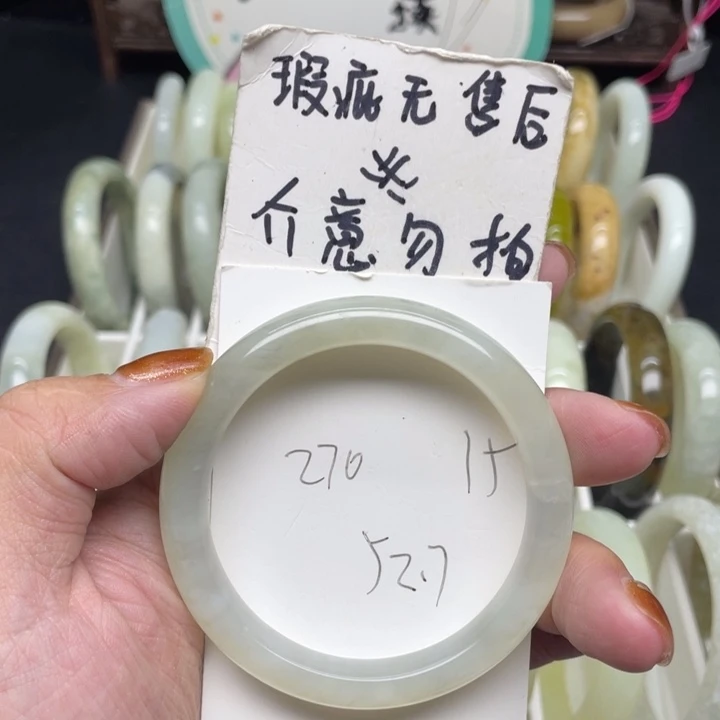 瑕疵无售后
介意勿拍
270 15
52.7